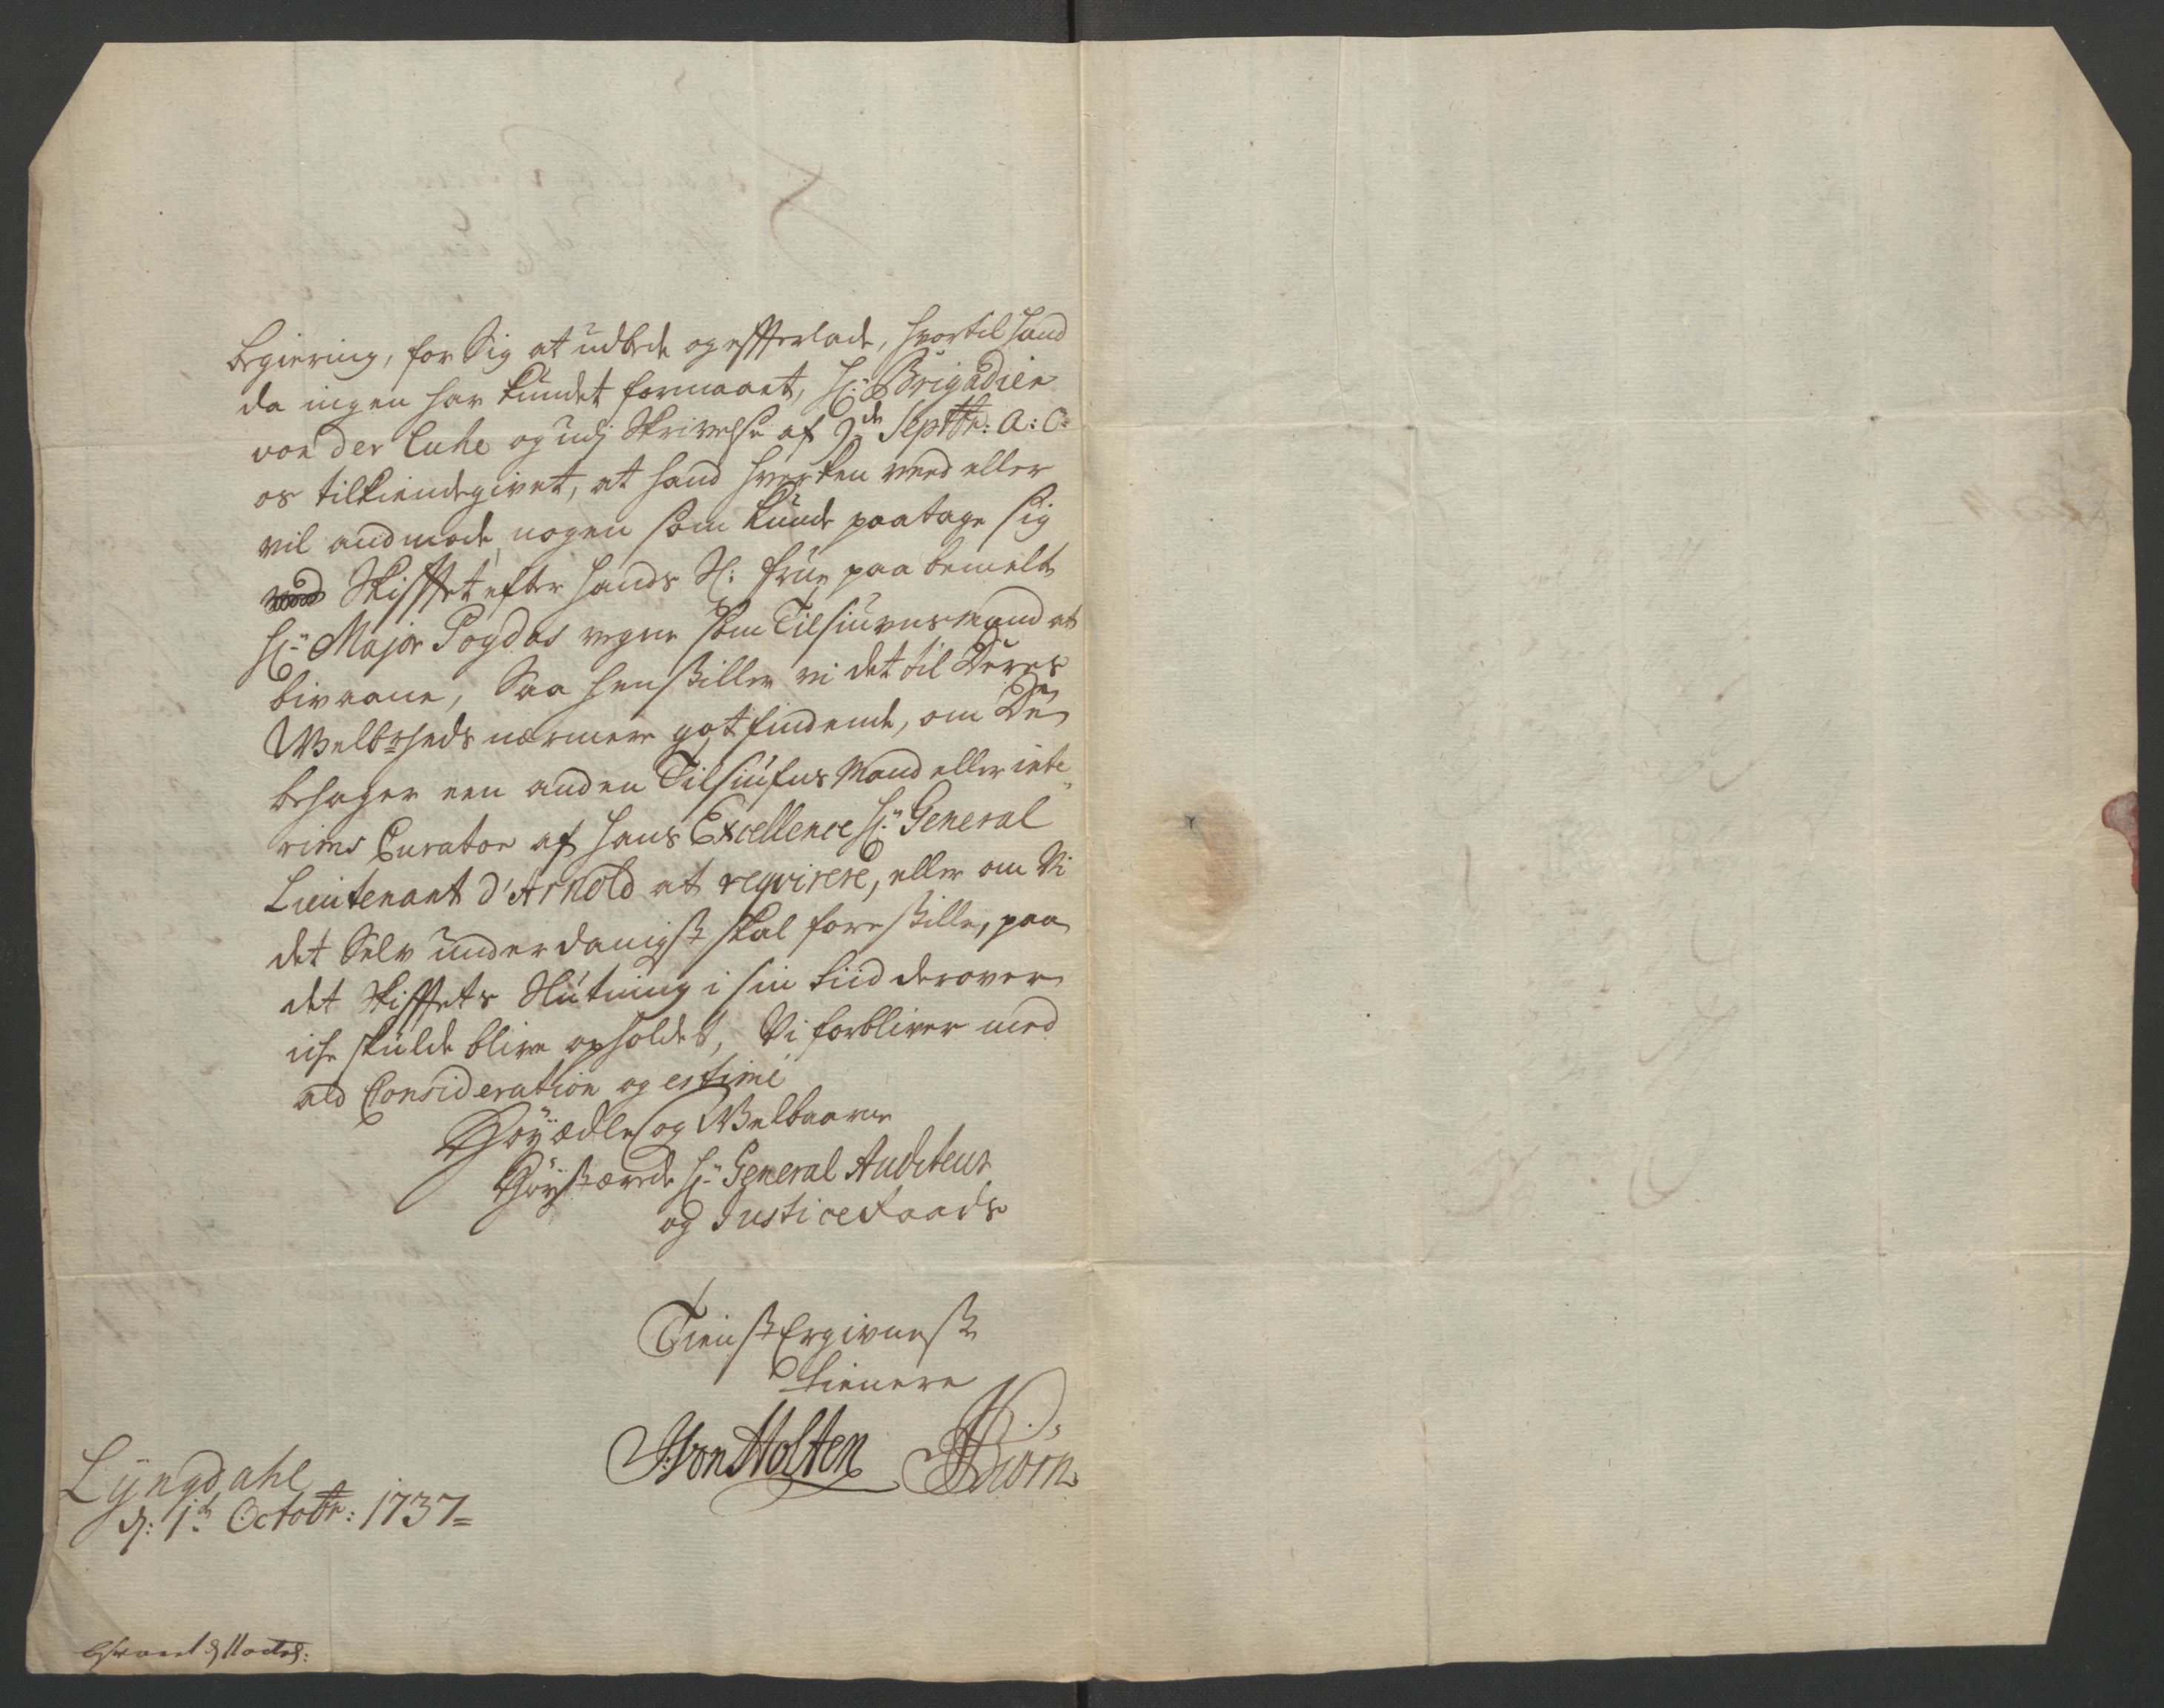 begiering, for Sig at udbede og efterlade, hvortil hand
da ingen har kundet formaaet, Hr: Brigadier
von der Luhe og udj Skrivelse af 9de Septbr: A: C:
os tilkiendegivet, at hand hverken veed eller
vil andmode nogen som kunde paatage sig
Skifftet efter hands Sl: Frue paa bemelte
Hr: Major Pogdas vegne som Tilsiunsmand at
bivaane, Saa henstiller vi det til Deres
Welb:heds nærmere gotfindende, om De
behager een anden Tilsiufns Mand eller inte-
rims Curator af Hans Excellence Hr: General
Lieutenant d'Arnold at reqvirere, eller om Vi
det Selv underdanigst skal forestille, paa
det Skifftets Slutning i sin tiid derover
iche skulde blive opholdet, Vi forbliver med
ald Consideration og estime
Høyædle og Welbaarne
Høystærede Hr: General Auditeur
og Justice Raads
Tienst Ergivenste
tienere
von Holten Biørn
Lyngdahl
d: 1de Octobr: 1737=